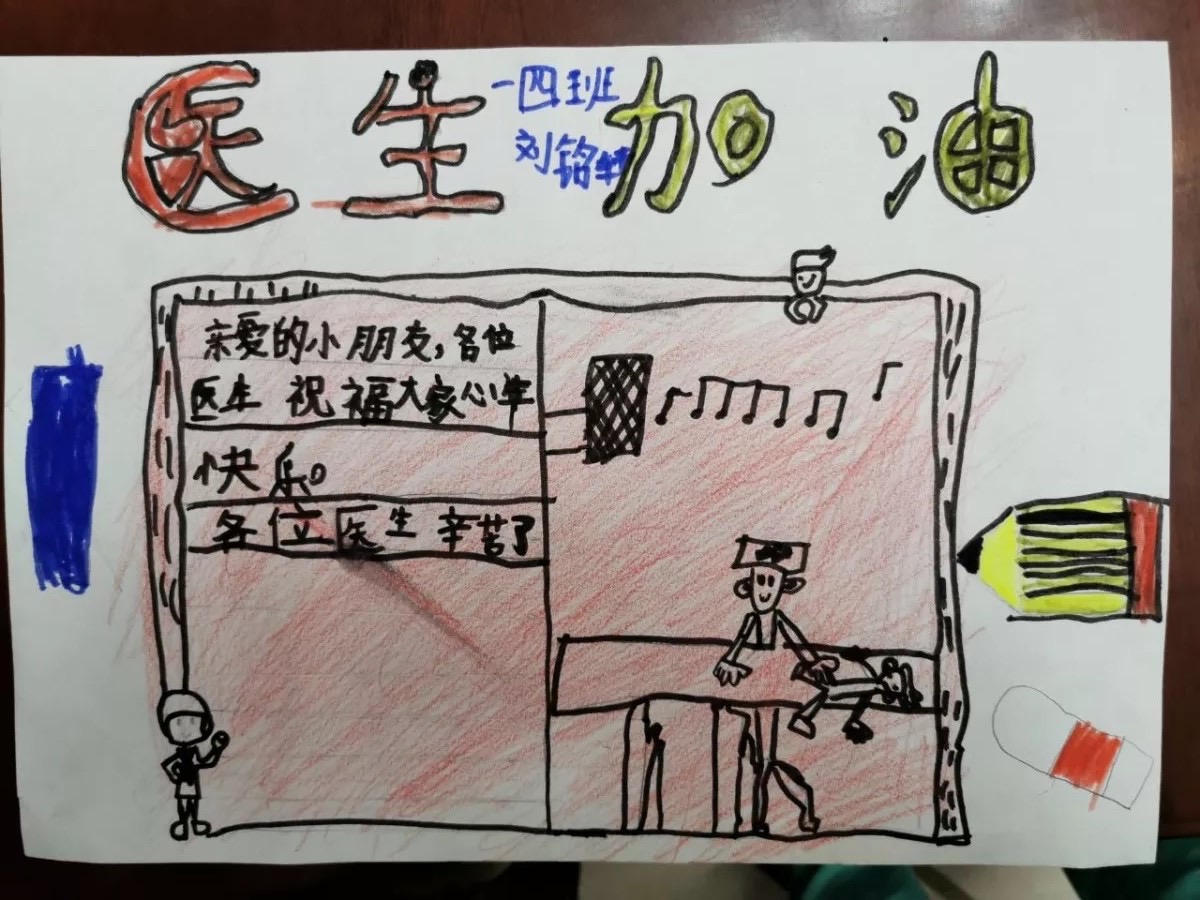 医生加油
一四班
刘铭
亲爱的小朋友，各位
医生 祝福大家心年
快乐。
各位医生辛苦了